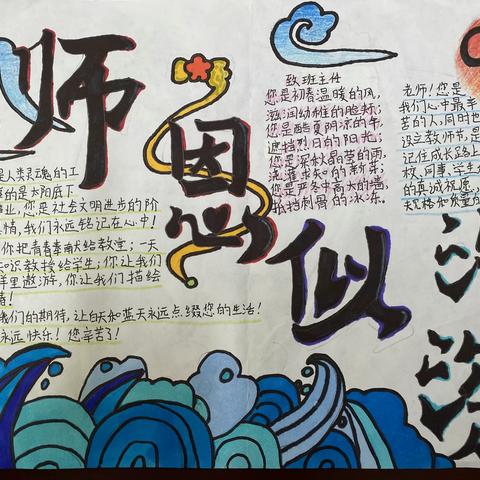 师恩似海
致班主任
您是初春温暖的风,
滋润幼稚的脸娇;
您是酷夏阴凉的伞,
遮挡烈日的阳光;
您是深秋晶莹的雨,
洗濯求知的新芽;
您是严冬中高大的墙,
抵挡刺骨的冰冻。
老师!您是
我们心中最辛
苦的人,同时也
设立教师节,是
记住成长路上
的真诚祝速
是人类灵魂的工
的是太阳底下
业,您是社会文明进步的阶
情,我们永远铭记在心中!
你把青春奉献给教室;一天
知识教授给学生;你让我们
里遨游,你让我们描绘
我们的期待,让白天和蓝天永远点缀您的生活!
永远快乐!您辛苦了!